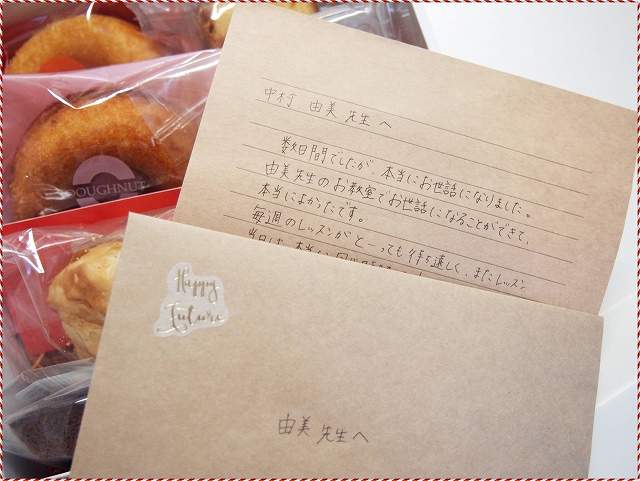 DOUGHNUT
中村 由美 先生へ
数日間でしたが、本当にお世話になりました。
由美先生のお教室でお世話になることができて、
本当によかったです。
毎週のレッスンがとーっても待ち遠しく、またレッスン
当日は、本当に
Happy
Future
由美 先生へ